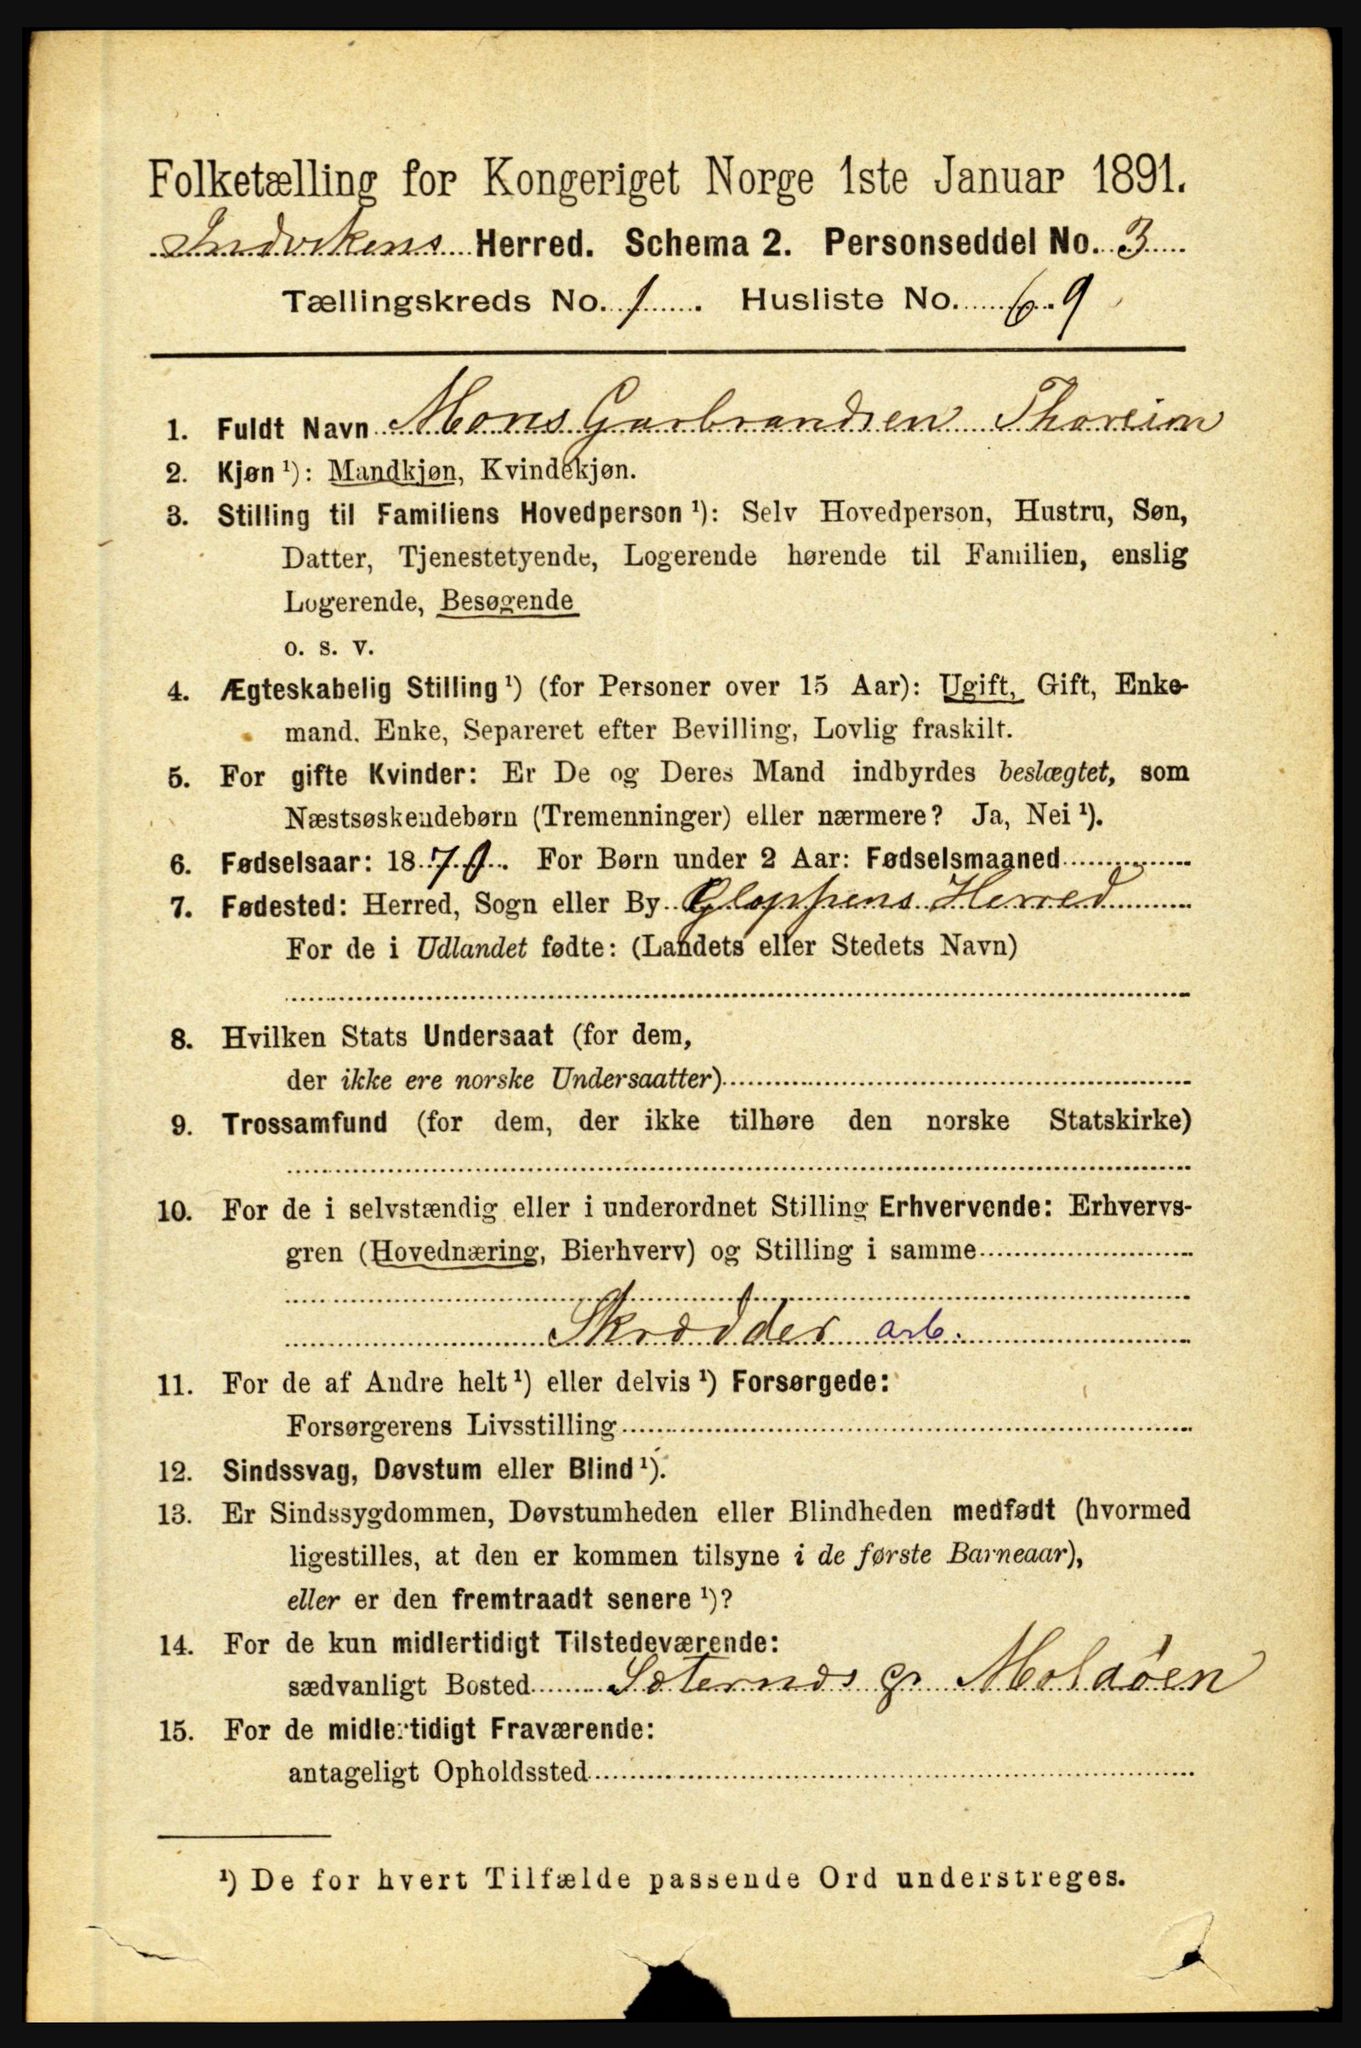 Folketælling for Kongeriget Norge 1ste Januar 1891.
Indvikens Herred. Schema 2. Personseddel No. 3
Tællingskreds No. 1. Husliste No. 69
1. Fuldt Navn Mons Garbrandsen Thoreim
2. Kjøn ¹): Mandkjøn, Kvindekjøn.
3. Stilling til Familiens Hovedperson ¹): Selv Hovedperson, Hustru, Søn,
Datter, Tjenestetyende, Logerende hørende til Familien, enslig
Logerende, Besøgende
o. s. v.
4. Ægteskabelig Stilling ¹) (for Personer over 15 Aar): Ugift, Gift, Enke-
mand, Enke, Separeret efter Bevilling, Lovlig fraskilt.
5. For gifte Kvinder: Er De og Deres Mand indbyrdes beslægtet, som
Næstsøskendebørn (Tremenninger) eller nærmere? Ja, Nei ¹).
6. Fødselsaar: 187 For Børn under 2 Aar: Fødselsmaaned
7. Fødested: Herred, Sogn eller By Gloppens Herred
For de i Udlandet fødte: (Landets eller Stedets Navn)
8. Hvilken Stats Undersaat (for dem,
der ikke ere norske Undersaatter)
9. Trossamfund (for dem, der ikke tilhøre den norske Statskirke)
10. For de i selvstændig eller i underordnet Stilling Erhvervende: Erhvervs-
gren (Hovednæring, Bierhverv) og Stilling i samme
Skrædder arb.
11. For de af Andre helt ¹) eller delvis ¹) Forsørgede:
Forsørgerens Livsstilling
12. Sindssvag, Døvstum eller Blind ¹).
13. Er Sindssygdommen, Døvstumheden eller Blindheden medfødt (hvormed
ligestilles, at den er kommen tilsyne i de første Barneaar),
eller er den fremtraadt senere ¹)?
14. For de kun midlertidigt Tilstedeværende:
sædvanligt Bosted Sæternæs pr Moldøen
15. For de midlertidigt Fraværende:
antageligt Opholdssted
¹) De for hvert Tilfælde passende Ord understreges.